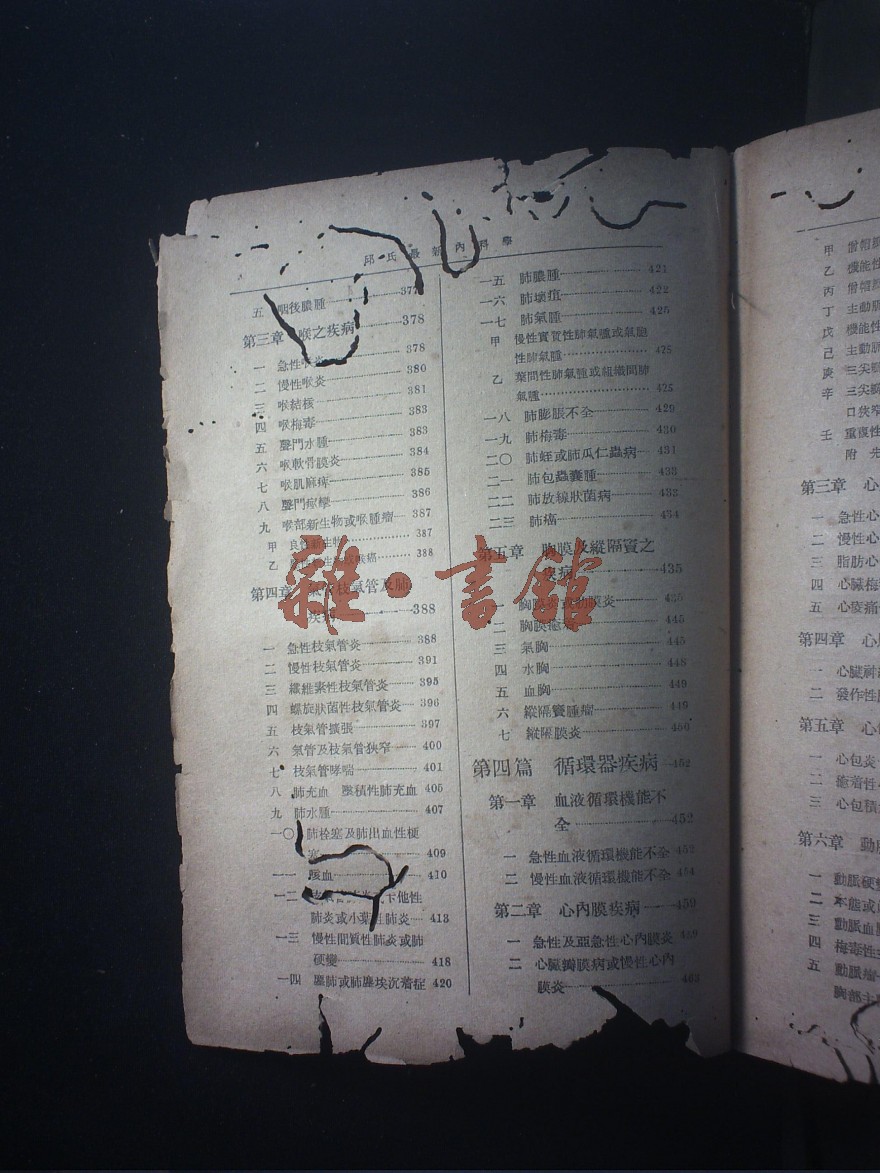 邱氏最新內科學
五 咽後膿腫 377
第三章 喉之疾病 378
一 急性喉炎 378
二 慢性喉炎 380
三 喉結核 381
四 喉梅毒 383
五 聲門水腫 383
六 喉軟骨膜炎 384
七 喉肌麻痺 385
八 聲門痙攣 386
九 喉部新生物或喉腫瘤 387
甲 良性新生物 387
乙 喉癌 388
第四章 氣管枝氣管及肺
疾病 388
一 急性枝氣管炎 388
二 慢性枝氣管炎 391
三 纖維素性枝氣管炎 395
四 螺旋狀菌性枝氣管炎 396
五 枝氣管擴張 397
六 氣管及枝氣管狹窄 400
七 枝氣管哮喘 401
八 肺充血 墜積性肺充血 405
九 肺水腫 407
一〇 肺栓塞及肺出血性梗
塞 409
一一 咳血 410
一二 卡他性
肺炎或小葉性肺炎 413
一三 慢性間質性肺炎或肺
硬變 418
一四 塵肺或肺塵埃沉着症 420
一五 肺膿腫 421
一六 肺壞疽 422
一七 肺氣腫 425
甲 慢性實質性肺氣腫或氣胞
性肺氣腫 425
乙 葉間性肺氣腫或組織間肺
氣腫 425
一八 肺膨脹不全 429
一九 肺梅毒 430
二〇 肺蛭或肺瓜仁蟲病 431
二一 肺包蟲囊腫 433
二二 肺放線狀菌病 433
二三 肺癌 434
第五章 胸膜及縱隔竇之
疾病 435
一 胸膜炎或肋膜炎 435
二 胸膜癒着 445
三 氣胸 445
四 水胸 448
五 血胸 449
六 縱隔竇腫瘤 449
七 縱隔膜炎 450
第四篇 循環器疾病 452
第一章 血液循環機能不
全 452
一 急性血液循環機能不全 452
二 慢性血液循環機能不全 454
第二章 心內膜疾病 459
一 急性及亞急性心內膜炎 459
二 心臟瓣膜病或慢性心內
膜炎 463
雜·書館
甲 僧帽
乙 機能性
丙 僧帽
丁 主動脈
戊 機能性
己 主動脈
庚 三尖瓣
辛 三尖瓣
口狹窄
壬 重複性
附 先
第三章 心
一 急性心
二 慢性心
三 脂肪心
四 心臟梅
五 心痰痛
第四章 心
一 心臟神
二 發作性
第五章 心
一 心包炎
二 癒着性
三 心包積
第六章 動
一 動脈硬
二 本態或
三 動脈血
四 梅毒性
五 動脈瘤
胸部主